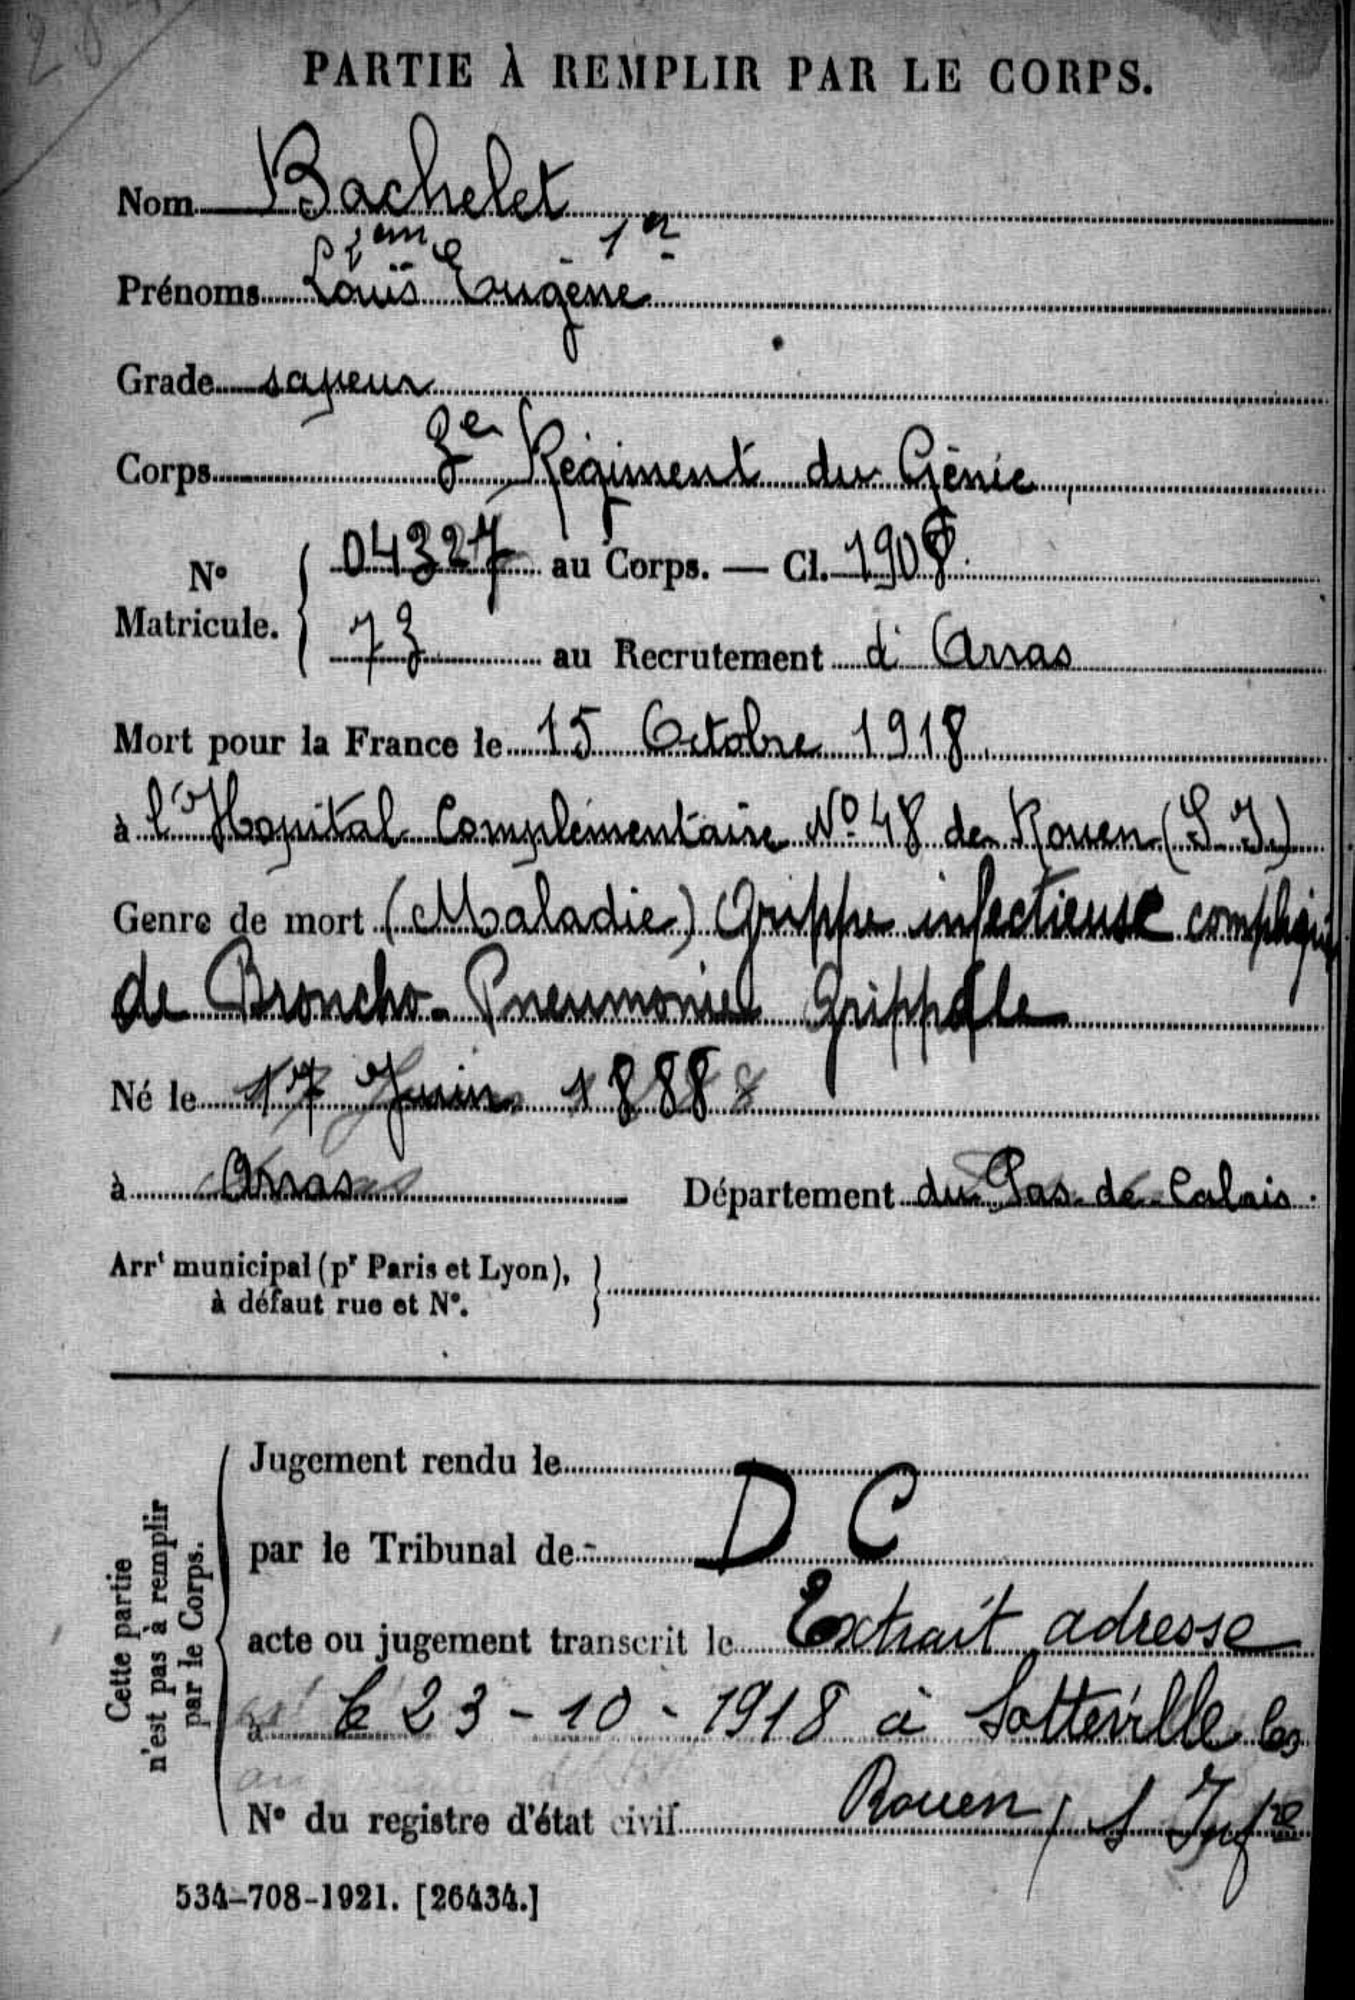 PARTIE À REMPLIR PAR LE CORPS.
Nom Bachelet
2em 1er
Prénoms Louis Eugène
Grade sapeur
Corps 3e Régiment du Génie
N° Matricule. { 04327 au Corps. — Cl. 1908
73 au Recrutement d'Arras
Mort pour la France le 15 Octobre 1918
à l'Hopital Complémentaire N° 48 de Rouen (S. I.)
Genre de mort (Maladie) Grippe infectieuse compliquée
de Broncho-Pneumonie Grippale
Né le 17 Juin 1888
à Arras Département du Pas-de-Calais
Arrt municipal (pr Paris et Lyon), à défaut rue et N°. }
Cette partie n'est pas à remplir par le Corps.
Jugement rendu le
par le Tribunal de D C
acte ou jugement transcrit le Extrait adresse
à le 23-10-1918 à Sotteville les
N° du registre d'état civil Rouen, S Infre
534-708-1921. [26434.]